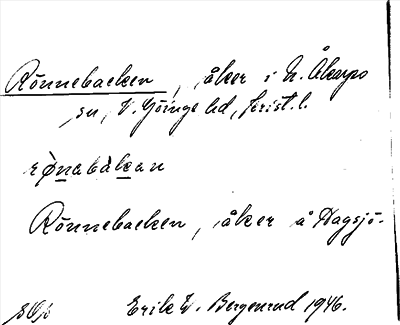 Rönnebacken, åker i N. Åkarps
sn, V. Göinge hd, Krist. l.
rø̀nabàkan
Rönnebacken, åker å Hagsjö-
Erik W. Bergenrud 1946.